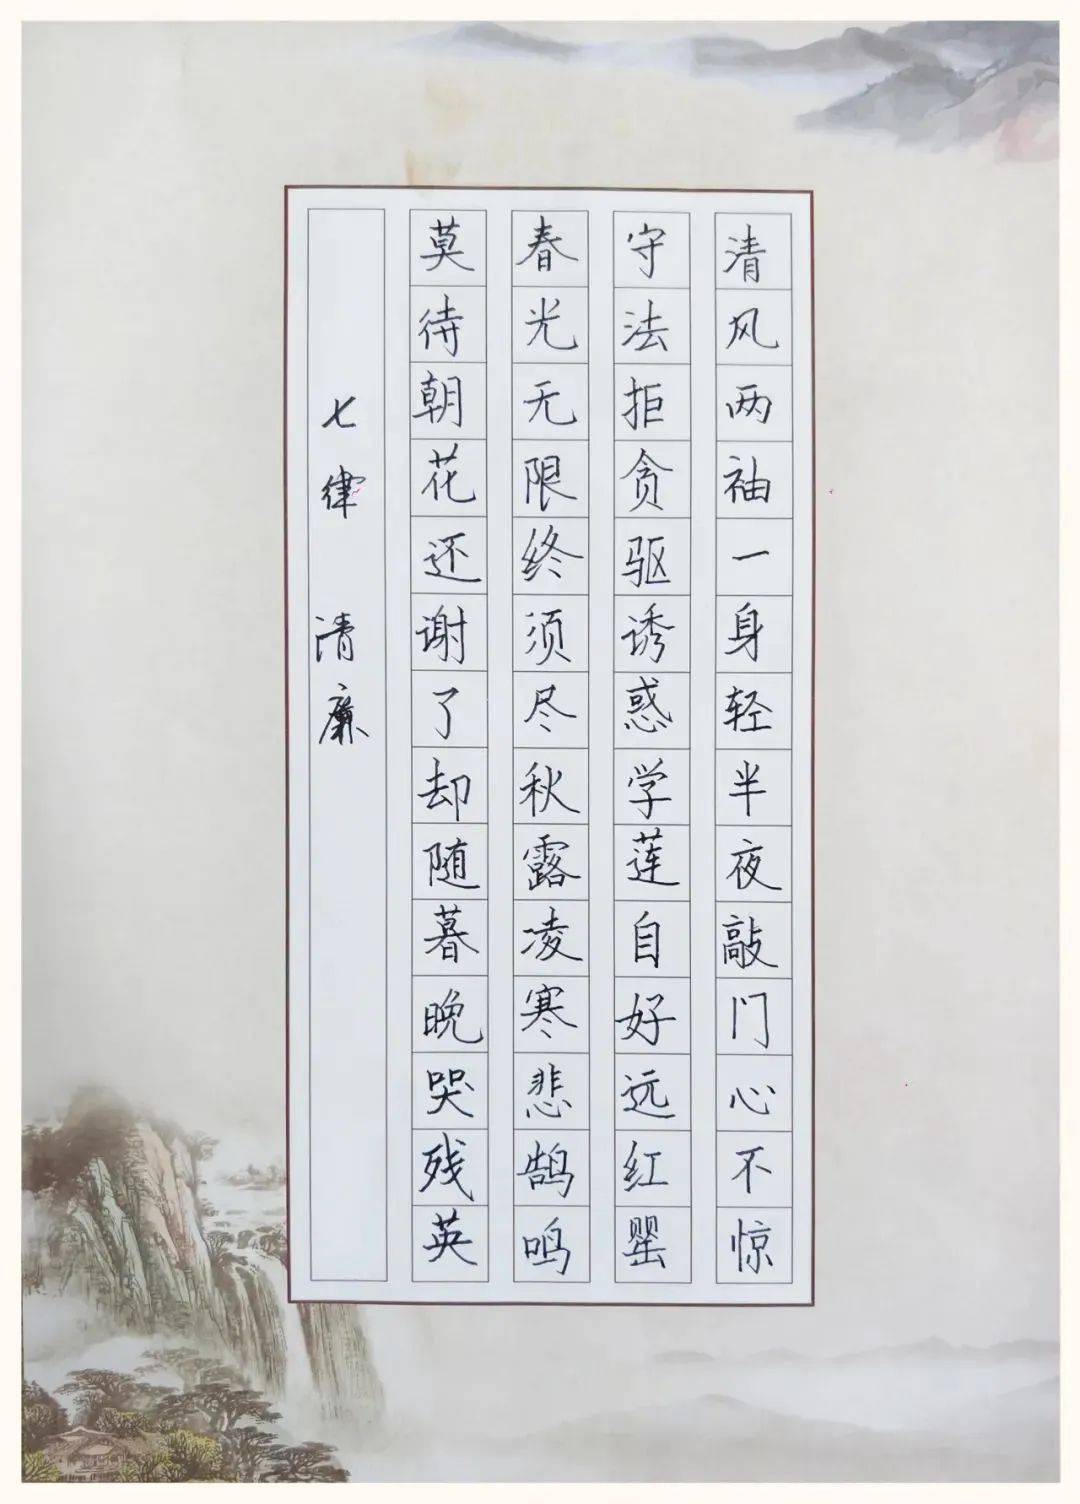 清风两袖一身轻半夜敲门心不惊
守法拒贪驱诱惑学莲自好远红罂
春光无限终须尽秋露凌寒悲鹄鸣
莫待朝花还谢了却随暮晚哭残英
七律 清廉